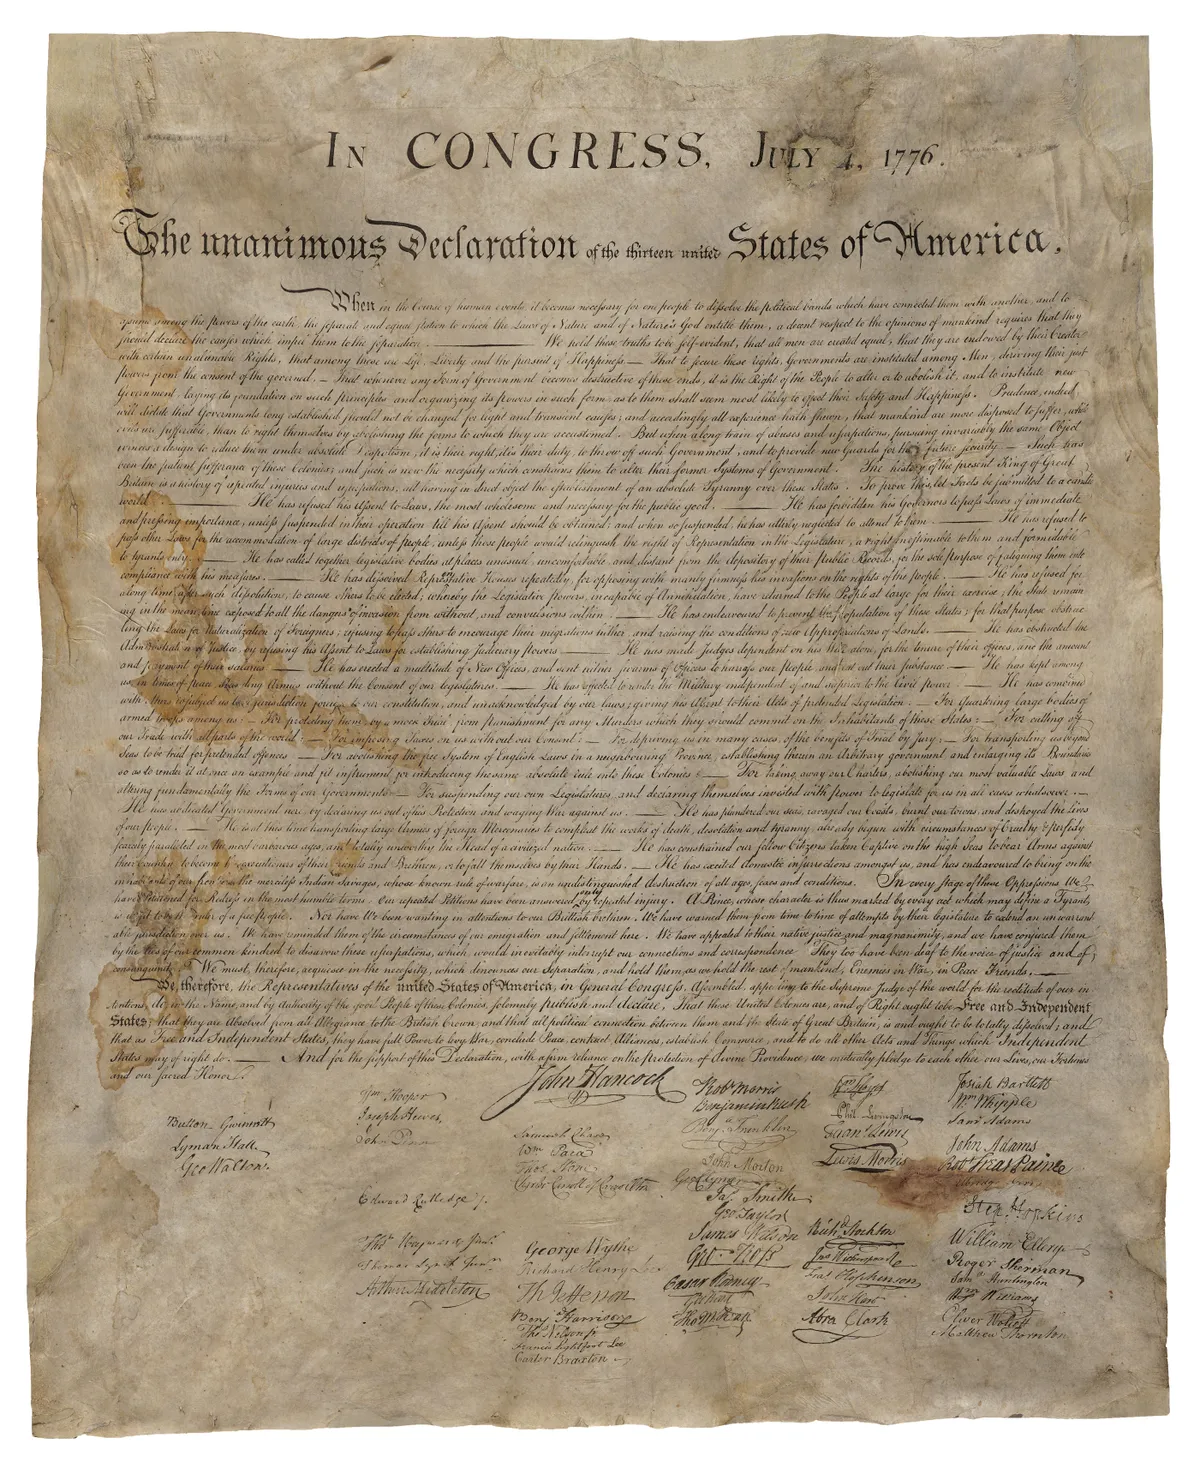 In CONGRESS, July 4, 1776.
The unanimous Declaration of the thirteen united States of America,
When in the Course of human events, it becomes necessary for one people to dissolve the political bands which have connected them with another, and to
assume among the powers of the earth, the separate and equal station to which the Laws of Nature and of Nature's God entitle them, a decent respect to the opinions of mankind requires that they
should declare the causes which impel them to the separation. ——— We hold these truths to be self-evident, that all men are created equal, that they are endowed by their Creator
with certain unalienable Rights, that among these are Life, Liberty and the pursuit of Happiness.— That to secure these rights, Governments are instituted among Men, deriving their just
powers from the consent of the governed,— That whenever any Form of Government becomes destructive of these ends, it is the Right of the People to alter or to abolish it, and to institute new
Government, laying its foundation on such principles and organizing its powers in such form, as to them shall seem most likely to effect their Safety and Happiness. Prudence, indeed,
will dictate that Governments long established should not be changed for light and transient causes; and accordingly all experience hath shewn, that mankind are more disposed to suffer, while
evils are sufferable, than to right themselves by abolishing the forms to which they are accustomed. But when a long train of abuses and usurpations, pursuing invariably the same Object
evinces a design to reduce them under absolute Despotism, it is their right, it is their duty, to throw off such Government, and to provide new Guards for their future security.— Such has
been the patient sufferance of these Colonies; and such is now the necessity which constrains them to alter their former Systems of Government. The history of the present King of Great
Britain is a history of repeated injuries and usurpations, all having in direct object the establishment of an absolute Tyranny over these States. To prove this, let Facts be submitted to a candid
world. ——— He has refused his Assent to Laws, the most wholesome and necessary for the public good. ——— He has forbidden his Governors to pass Laws of immediate
and pressing importance, unless suspended in their operation till his Assent should be obtained; and when so suspended, he has utterly neglected to attend to them. ——— He has refused to
pass other Laws for the accommodation of large districts of people, unless those people would relinquish the right of Representation in the Legislature, a right inestimable to them and formidable
to tyrants only. ——— He has called together legislative bodies at places unusual, uncomfortable, and distant from the depository of their Public Records, for the sole purpose of fatiguing them into
compliance with his measures. ——— He has dissolved Representative Houses repeatedly, for opposing with manly firmness his invasions on the rights of the people. ——— He has refused for
a long time, after such dissolutions, to cause others to be elected; whereby the Legislative powers, incapable of Annihilation, have returned to the People at large for their exercise; the State remain
ing in the mean time exposed to all the dangers of invasion from without, and convulsions within. ——— He has endeavoured to prevent the population of these States; for that purpose obstruc
ting the Laws for Naturalization of Foreigners; refusing to pass others to encourage their migrations hither, and raising the conditions of new Appropriations of Lands. ——— He has obstructed the
Administration of Justice, by refusing his Assent to Laws for establishing Judiciary powers. ——— He has made Judges dependent on his Will alone, for the tenure of their offices, and the amount
and payment of their salaries. ——— He has erected a multitude of New Offices, and sent hither swarms of Officers to harrass our people, and eat out their substance. ——— He has kept among
us, in times of peace, Standing Armies without the Consent of our legislatures. ——— He has affected to render the Military independent of and superior to the Civil power. ——— He has combined
with others to subject us to a jurisdiction foreign to our constitution, and unacknowledged by our laws; giving his Assent to their Acts of pretended Legislation: — For Quartering large bodies of
armed troops among us: — For protecting them, by a mock Trial, from punishment for any Murders which they should commit on the Inhabitants of these States: — For cutting off
our Trade with all parts of the world: — For imposing Taxes on us without our Consent: — For depriving us in many cases, of the benefits of Trial by Jury: — For transporting us beyond
Seas to be tried for pretended offences — For abolishing the free System of English Laws in a neighbouring Province, establishing therein an Arbitrary government, and enlarging its Boundaries
so as to render it at once an example and fit instrument for introducing the same absolute rule into these Colonies: — For taking away our Charters, abolishing our most valuable Laws, and
altering fundamentally the Forms of our Governments: — For suspending our own Legislatures, and declaring themselves invested with power to legislate for us in all cases whatsoever. —
He has abdicated Government here, by declaring us out of his Protection and waging War against us. — He has plundered our seas, ravaged our Coasts, burnt our towns, and destroyed the lives
of our people. — He is at this time transporting large Armies of foreign Mercenaries to compleat the works of death, desolation and tyranny, already begun with circumstances of Cruelty & perfidy
scarcely paralleled in the most barbarous ages, and totally unworthy the Head of a civilized nation. — He has constrained our fellow Citizens taken Captive on the high Seas to bear Arms against
their Country, to become the executioners of their friends and Brethren, or to fall themselves by their Hands. — He has excited domestic insurrections amongst us, and has endeavoured to bring on the
inhabitants of our frontiers, the merciless Indian Savages, whose known rule of warfare, is an undistinguished destruction of all ages, sexes and conditions. In every stage of these Oppressions We
have Petitioned for Redress in the most humble terms: Our repeated Petitions have been answered only by repeated injury. A Prince, whose character is thus marked by every act which may define a Tyrant,
is unfit to be the ruler of a free people. Nor have We been wanting in attentions to our Brittish brethren. We have warned them from time to time of attempts by their legislature to extend an unwarrant
able jurisdiction over us. We have reminded them of the circumstances of our emigration and settlement here. We have appealed to their native justice and magnanimity, and we have conjured them
by the ties of our common kindred to disavow these usurpations, which, would inevitably interrupt our connections and correspondence. They too have been deaf to the voice of justice and of
consanguinity. We must, therefore, acquiesce in the necessity, which denounces our Separation, and hold them, as we hold the rest of mankind, Enemies in War, in Peace Friends. —
We, therefore, the Representatives of the united States of America, in General Congress, Assembled, appealing to the Supreme Judge of the world for the rectitude of our in
tentions, do, in the Name, and by Authority of the good People of these Colonies, solemnly publish and declare, That these United Colonies are, and of Right ought to be Free and Independent
States; that they are Absolved from all Allegiance to the British Crown, and that all political connection between them and the State of Great Britain, is and ought to be totally dissolved; and
that as Free and Independent States, they have full Power to levy War, conclude Peace, contract Alliances, establish Commerce, and to do all other Acts and Things which Independent
States may of right do. — And for the support of this Declaration, with a firm reliance on the protection of divine Providence, we mutually pledge to each other our Lives, our Fortunes
and our sacred Honor.
Button Gwinnett
Lyman Hall
Geo Walton.
Wm Hooper
Joseph Hewes,
John Penn
Edward Rutledge /.
Thos Heyward Junr.
Thomas Lynch Junr.
Arthur Middleton
John Hancock
Samuel Chase
Wm Paca
Thos Stone
Charles Carroll of Carrollton
George Wythe
Richard Henry Lee
Th Jefferson
Benj Harrison
Thos Nelson jr
Francis Lightfoot Lee
Carter Braxton
Robt Morris
Benjamin Rush
Benja Franklin
John Morton
Geo Clymer
Jas Smith
Geo Taylor
James Wilson
Geo Ross
Caesar Rodney
Geo Read
Tho M:Kean
Wm Floyd
Phil. Livingston
Frans Lewis
Lewis Morris
Richd Stockton
Jno Witherspoon
Fras Hopkinson
John Hart
Abra Clark
Josiah Bartlett
Wm Whipple
Saml Adams
John Adams
Robt Treat Paine
Elbridge Gerry
Step. Hopkins
William Ellery
Roger Sherman
Saml Huntington
Wm Williams
Oliver Wolcott
Matthew Thornton